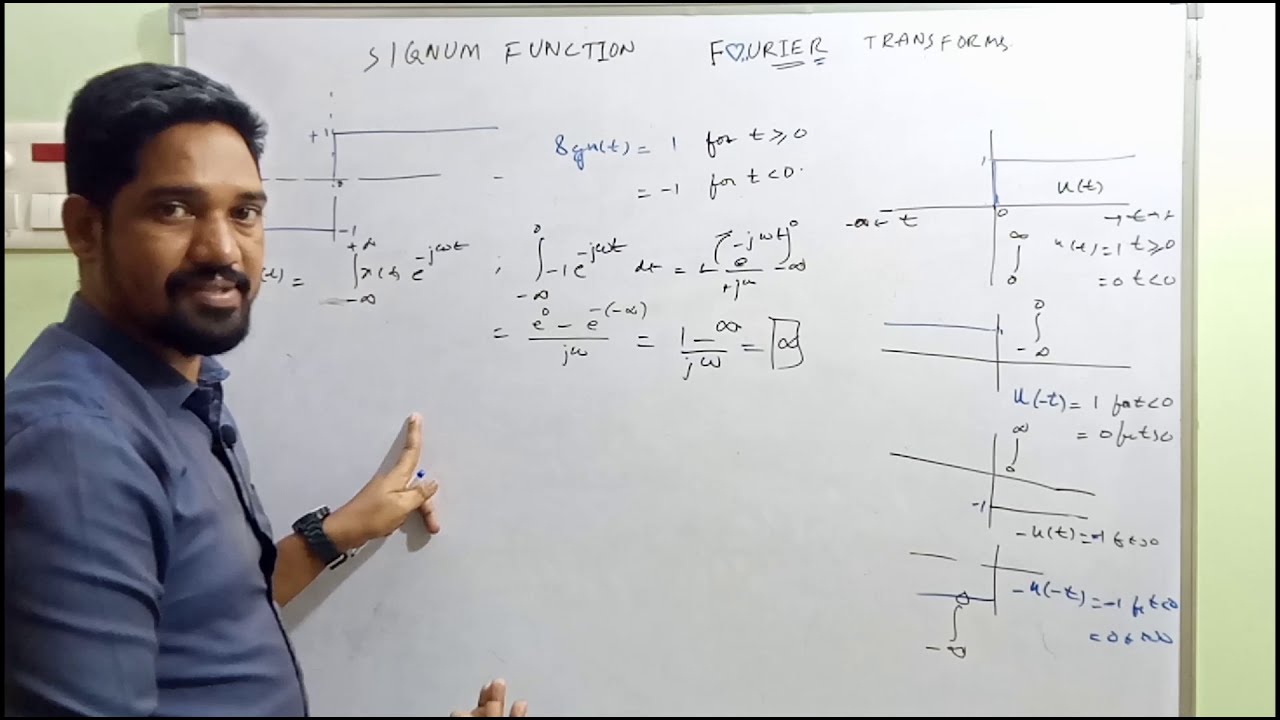 SIGNUM FUNCTION FOURIER TRANSFORMS
+1
0
-1
Sgn(t) = 1 for t ≥ 0
= -1 for t < 0
∫ x(t) e^{-jωt}
+∞
-∞
; ∫_{-∞}^{0} -1 e^{-jωt} dt = +[e^{-jωt}/+jω]_{-∞}^{0}
= (e^0 - e^{-(-∞)})/jω = (1-∞)/jω = ∞
1
u(t)
0
-∞ ← t
→ t → ∞
∫_0^∞
u(t) = 1 t ≥ 0
= 0 t < 0
∫_{-∞}^0
u(-t) = 1 for t < 0
= 0 for t > 0
∫_0^∞
-1
-u(t) = -1 for t > 0
-u(-t) = -1 for t < 0
∫_{-∞}^0